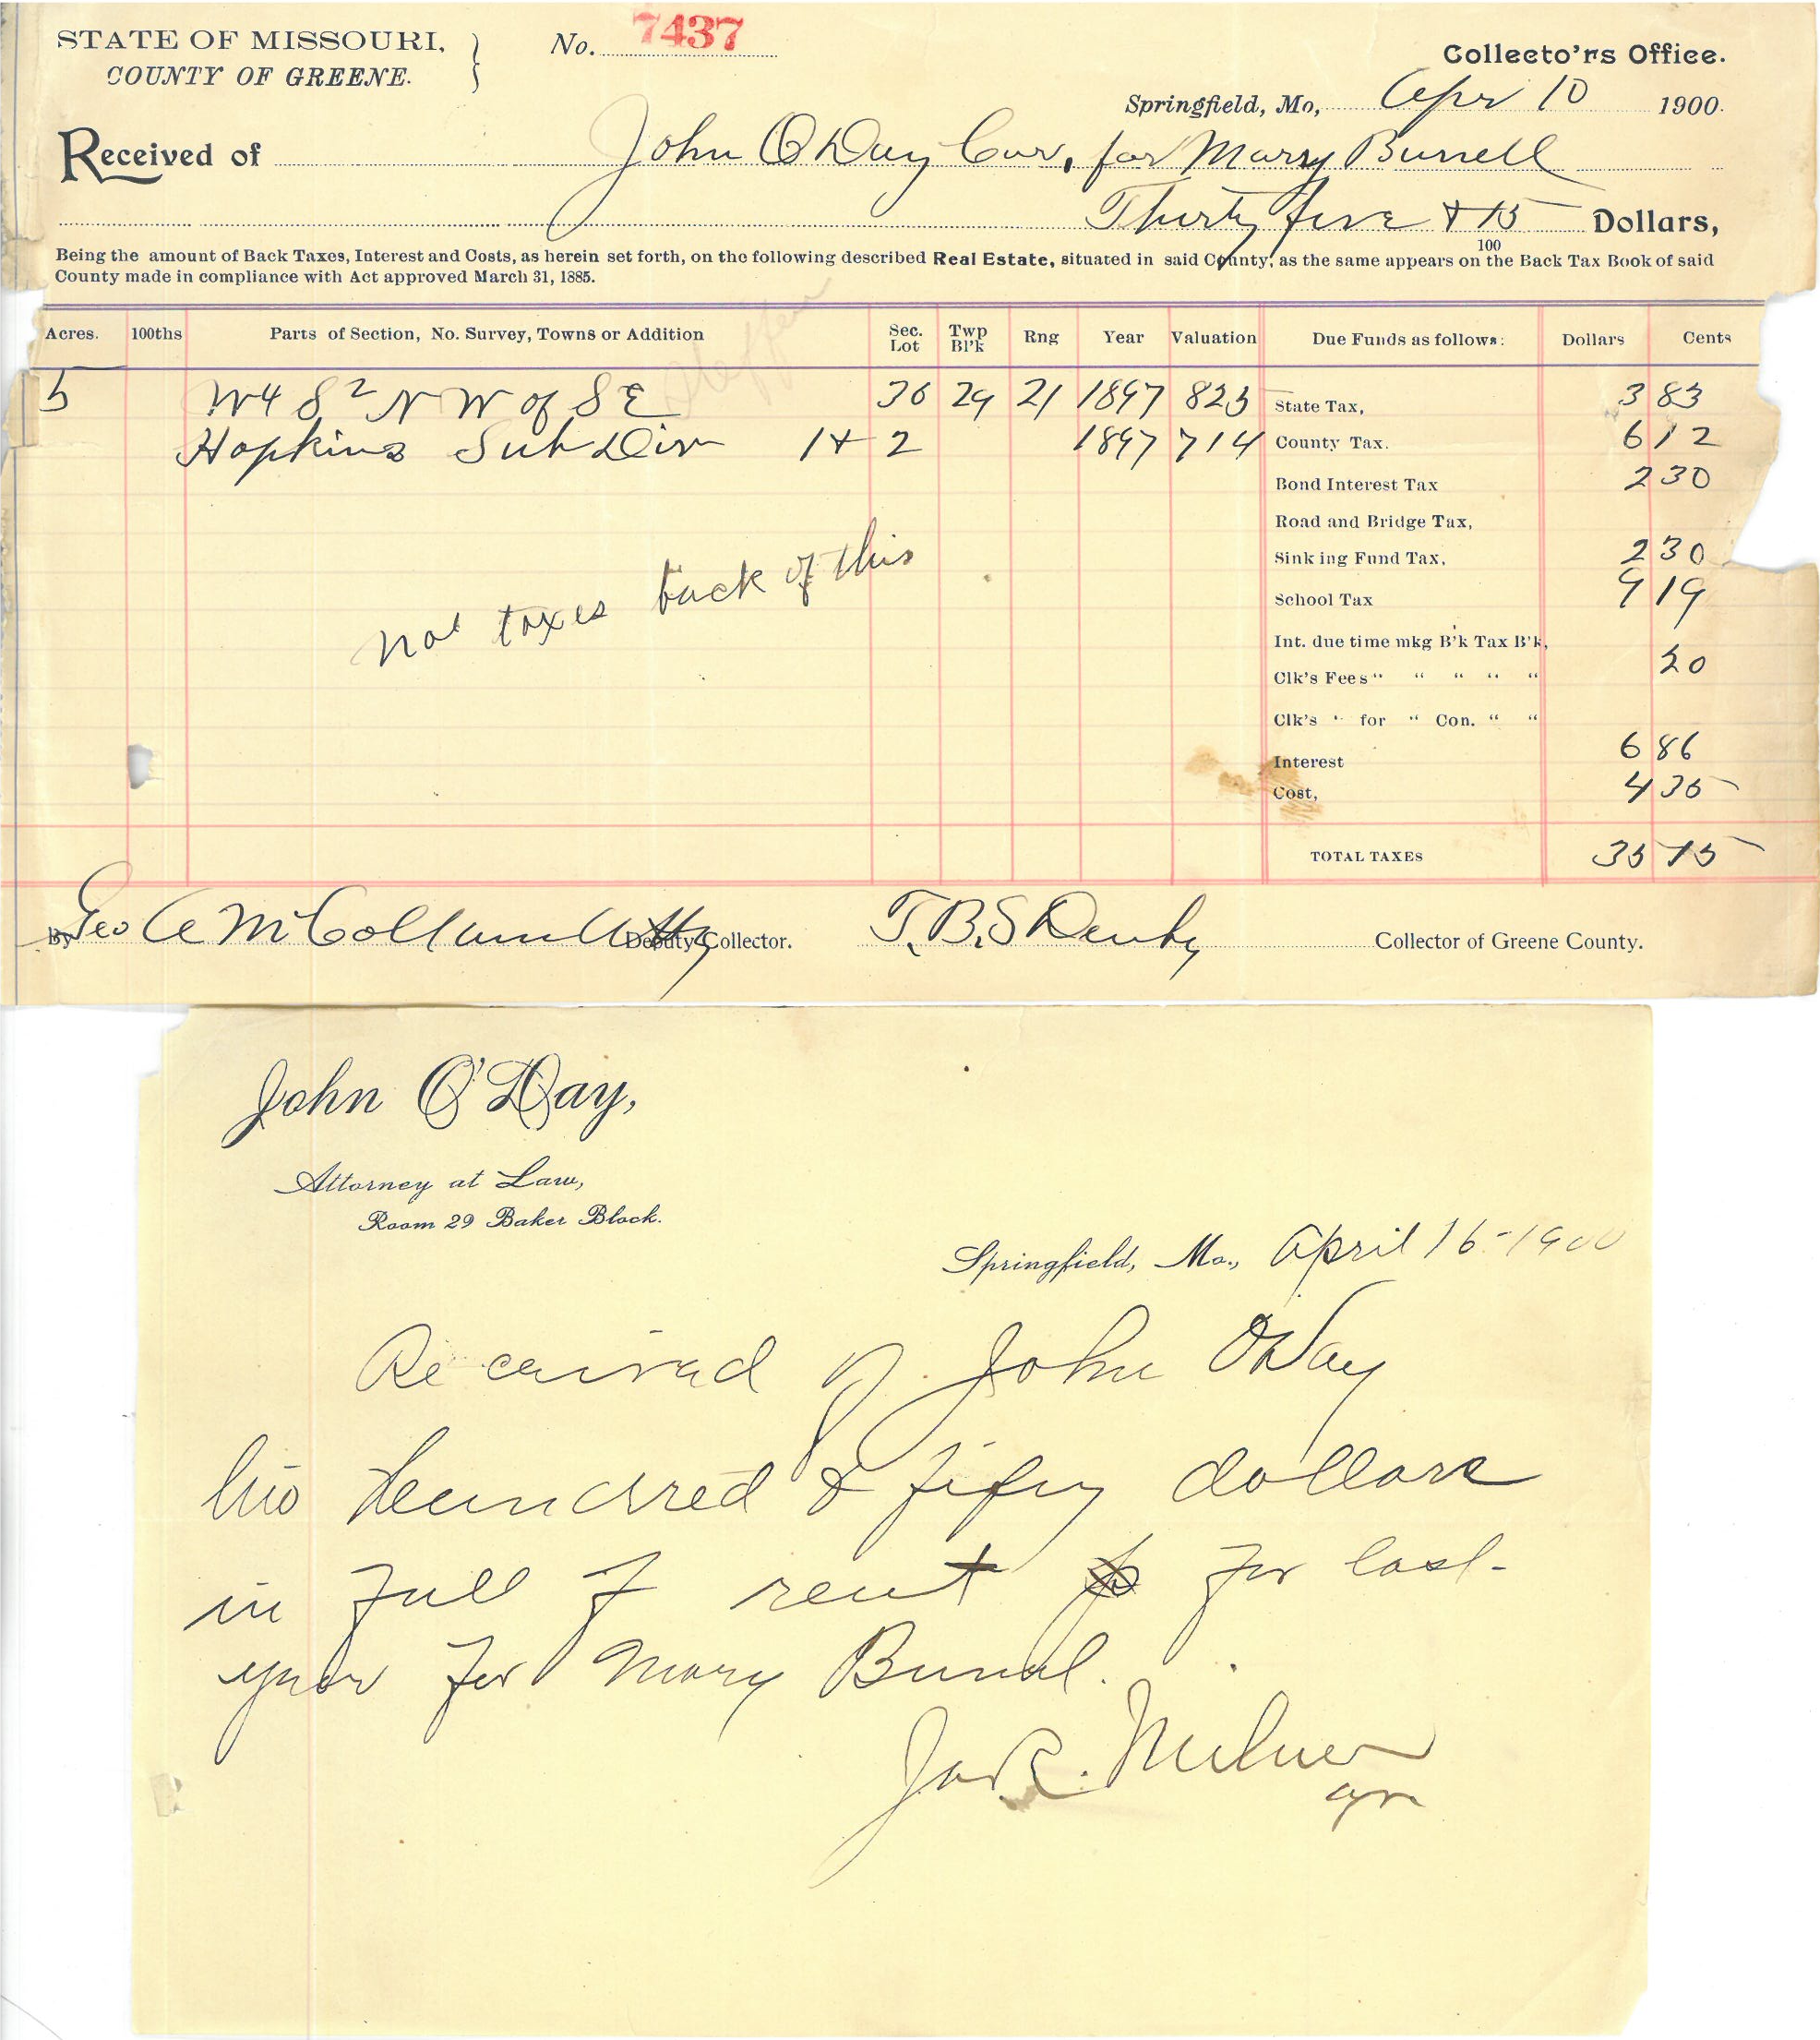 STATE OF MISSOURI, } No. 7437
COUNTY OF GREENE.
Collecto'rs Office.
Springfield, Mo, Apr 10 1900.
Received of John O Day Cur, for Mary Burrell
Thirty five & 15/100 Dollars,
Being the amount of Back Taxes, Interest and Costs, as herein set forth, on the following described Real Estate, situated in said County, as the same appears on the Back Tax Book of said
County made in compliance with Act approved March 31, 1885.
Acres. 100ths Parts of Section, No. Survey, Towns or Addition Sec. Lot Twp Bl'k Rng Year Valuation Due Funds as follows: Dollars Cents
5 W4 S2 N W of S E 36 29 21 1897 825 State Tax, 3 83
Hopkins Sub Div 1 + 2 1897 714 County Tax. 6 12
Bond Interest Tax 2 30
Road and Bridge Tax,
Sinking Fund Tax, 2 30
School Tax 9 19
not taxes back of this
Int. due time mkg B'k Tax B'k,
Clk's Fees " " " " " 20
Clk's " for " Con. " "
Interest 6 86
Cost, 4 35
TOTAL TAXES 35 15
By Geo A McCollum Atty Deputy Collector. T. B. S Denby Collector of Greene County.
John O'Day,
Attorney at Law,
Room 29 Baker Block.
Springfield, Mo., April 16-1900
Received of John ODay
two hundred & fifty dollars
in full of rent for last
year for Mary Burrel.
Milner